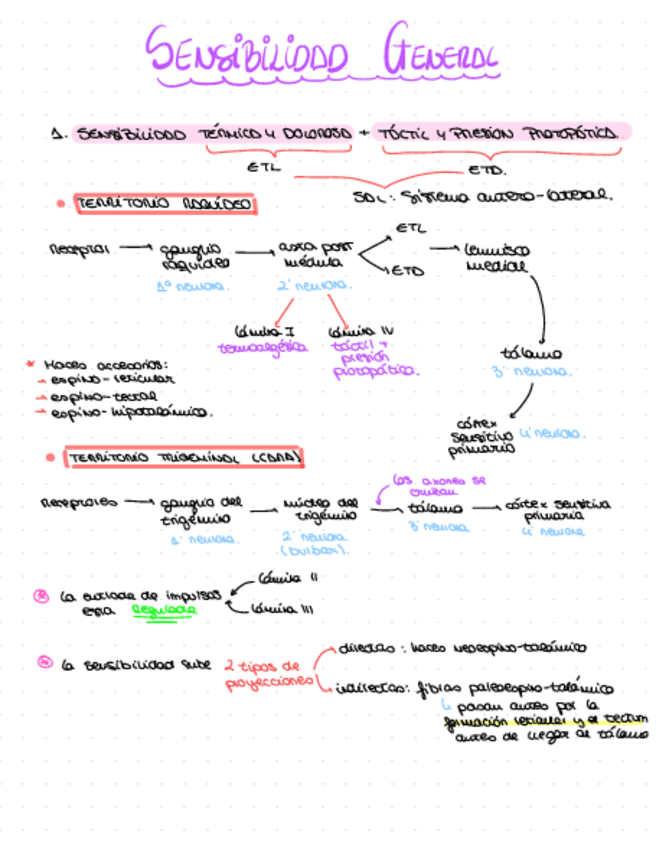 SENSIBILIDAD GENERAL
1. SENSIBILIDAD TÉRMICA Y DOLOROSA + TÁCTIL Y PRESIÓN PROTOPÁTICA.
ETL
ETD.
SAL: Sistema antero-lateral.
TERRITORIO RAQUÍDEO
Receptor → ganglio raquídeo → asta post médula
ETL
ETD
→ lemnisco medial
1ª neurona.
2ª neurona.
lámina I
termoalgésica
lámina IV
táctil +
presión
protopática.
tálamo
3ª neurona.
* Haces accesorios:
→ espino-reticular
→ espino-tectal
→ espino-hipotalámico.
córtex
sensitivo
primario
4ª neurona.
TERRITORIO TRIGEMINAL (CARA)
los axones se
cruzan
Receptores → ganglio del trigémino → núcleo del trigémino → tálamo → córtex sensitiva primaria
1ª neurona.
2ª neurona
(bulbar).
3ª neurona
4ª neurona
la entrada de impulsos
está regulada
lámina II
lámina III
la sensibilidad sube 2 tipos de
proyecciones
directas: haces neoespino-talámico
indirectas: fibras paleoespino-talámico
pasan antes por la
formación reticular y el tectum
antes de llegar al tálamo